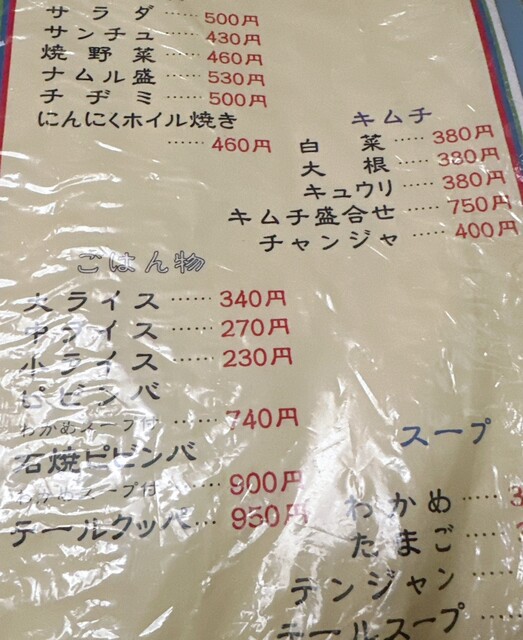 サラダ……500円
サンチュ……430円
焼野菜……460円
ナムル盛……530円
チヂミ……500円
にんにくホイル焼き
……460円
キムチ
白菜……380円
大根……380円
キュウリ……380円
キムチ盛合せ……750円
チャンジャ……400円
ごはん物
大ライス……340円
中ライス……270円
小ライス……230円
ピビンバ
わかめスープ付……740円
石焼ピビンバ
わかめスープ付……900円
テールクッパ……950円
スープ
わかめ……3
たまご……
テンジャン……
テールスープ……